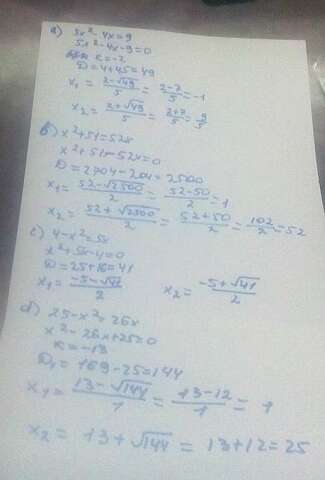 a) 5x²-4x=9
5x²-4x-9=0
k=-2
D=4+45=49
x₁=(2-√49)/5=(2-7)/5=-1
x₂=(2+√49)/5=(2+7)/5=9/5
b) x²+51=52x
x²+51-52x=0
D=2704-204=2500
x₁=(52-√2500)/2=(52-50)/2=1
x₂=(52+√2500)/2=(52+50)/2=102/2=52
c) 4-x²=5x
x²+5x-4=0
D=25+16=41
x₁=(-5-√41)/2 x₂=(-5+√41)/2
d) 25-x²=26x
x²-26x+25=0
k=-13
D₁=169-25=144
x₁=(13-√144)/1=(13-12)/1=1
x₂=13+√144=13+12=25